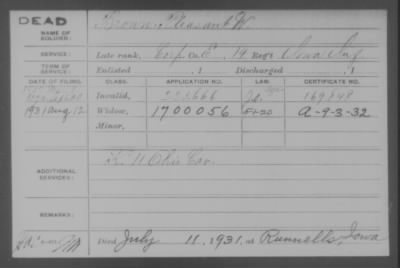 DEAD
NAME OF SOLDIER: Brown, Pleasant W.
SERVICE: Late rank, Corp. Co. E, 19 Reg't Iowa Inf.
TERM OF SERVICE: Enlisted , 1 Discharged , 1
DATE OF FILING. CLASS. APPLICATION NO. LAW. CERTIFICATE NO.
Invalid,
1931 Aug. 12 Widow, 1700056 A-9-3-32
Minor,
ADDITIONAL SERVICES: K. 11 Ohio Cav.
REMARKS:
Died July 11, 1931, at Runnells, Iowa